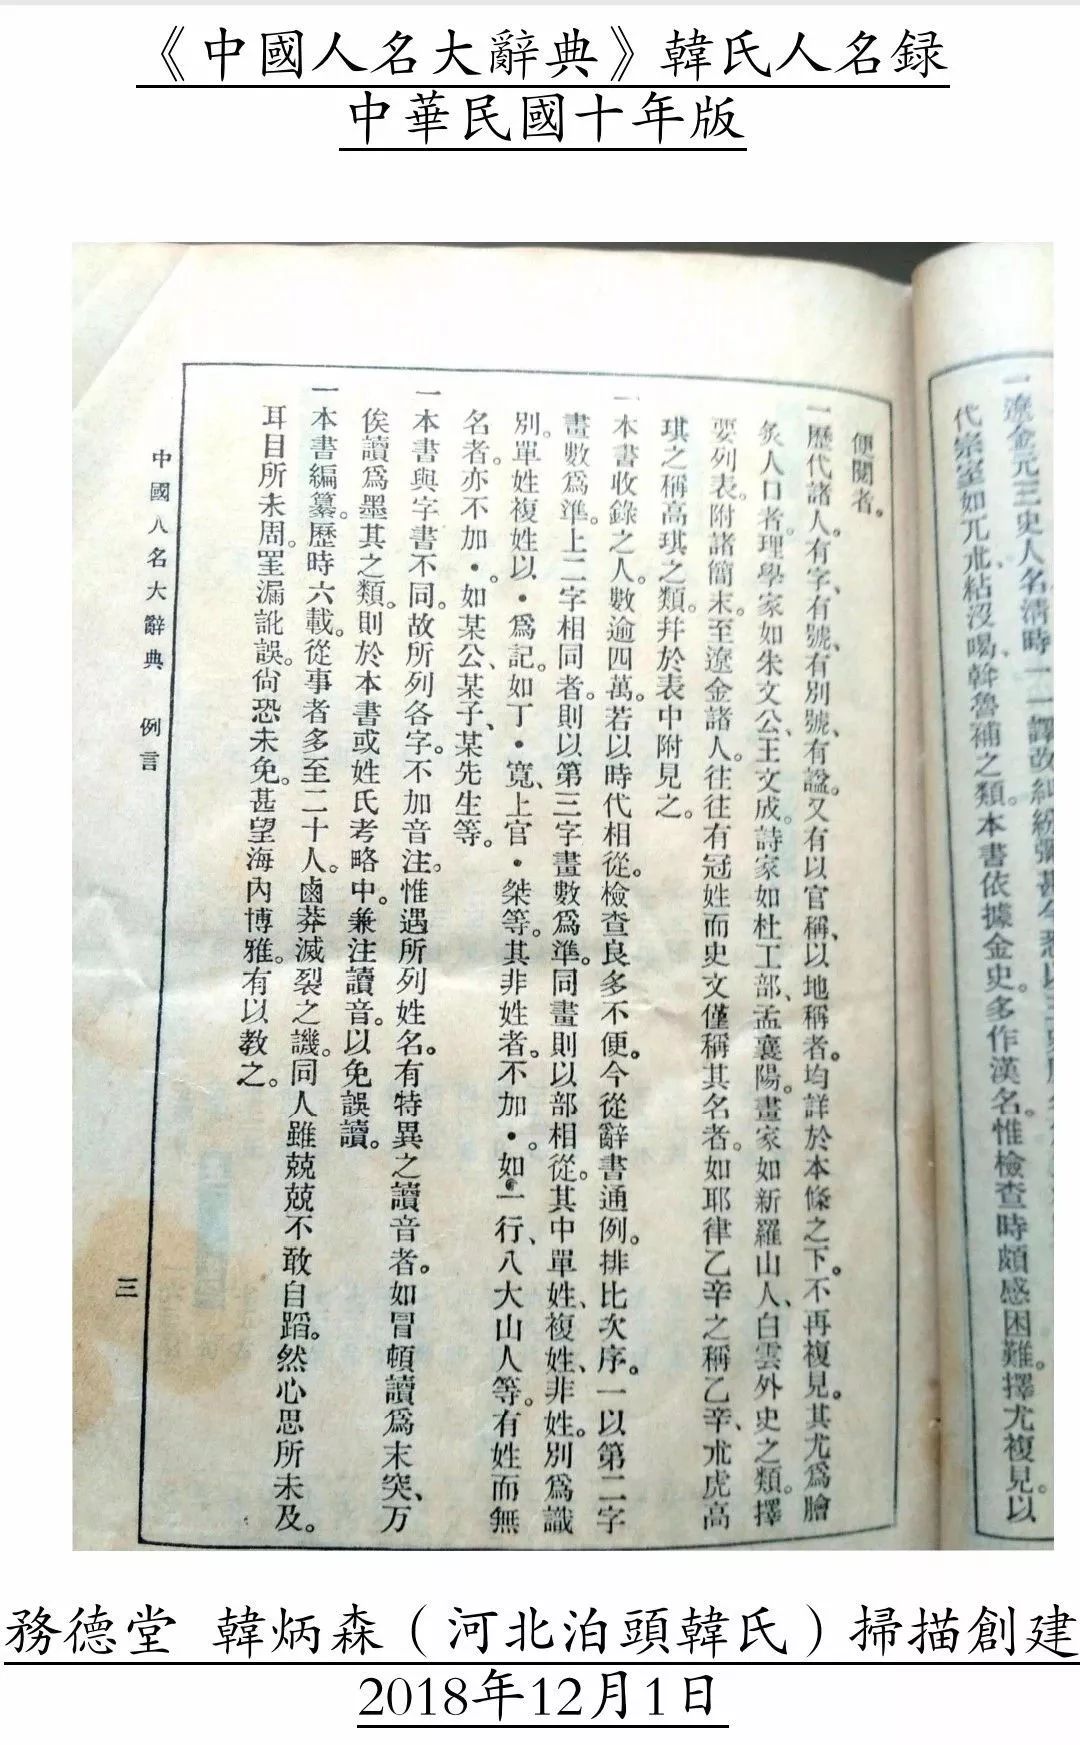 《中國人名大辭典》韓氏人名録
中華民國十年版
一遼金元三史人名淸時一一譯改糾紛彌甚今悉以三史
代宗室如兀朮、粘沒喝、斡魯補之類。本書依據金史。多作漢名。惟檢查時頗感困難。擇尤複見。以
便閱者。
一歷代諸人。有字、有號、有別號、有諡。又有以官稱、以地稱者。均詳於本條之下。不再複見。其尤爲膾
炙人口者。理學家如朱文公、王文成。詩家如杜工部、孟襄陽。畫家如新羅山人、白雲外史之類。擇
要列表。附諸簡末。至遼金諸人。往往有冠姓而史文僅稱其名者。如耶律乙辛之稱乙辛、朮虎高
琪之稱高琪之類。幷於表中附見之。
一本書收錄之人。數逾四萬。若以時代相從。檢查良多不便。今從辭書通例。排比次序。一以第二字
畫數爲準。上二字相同者。則以第三字畫數爲準。同畫則以部相從。其中單姓、複姓、非姓。別爲識
別。單姓複姓以・爲記。如丁・寬、上官・桀等。其非姓者。不加・。如一行、八大山人等。有姓而無
名者。亦不加・。如某公、某子、某先生等。
一本書與字書不同。故所列各字。不加音注。惟遇所列姓名。有特異之讀音者。如冒頓讀爲末突、万
俟讀爲墨其之類。則於本書或姓氏考略中。兼注讀音。以免誤讀。
一本書編纂。歷時六載。從事者多至二十人。鹵莽滅裂之譏。同人雖兢兢不敢自蹈。然心思所未及。
耳目所未周。罣漏訛誤。尙恐未免。甚望海內博雅。有以教之。
中國人名大辭典 例言
三
務德堂 韓炳森（河北泊頭韓氏）掃描創建
2018年12月1日